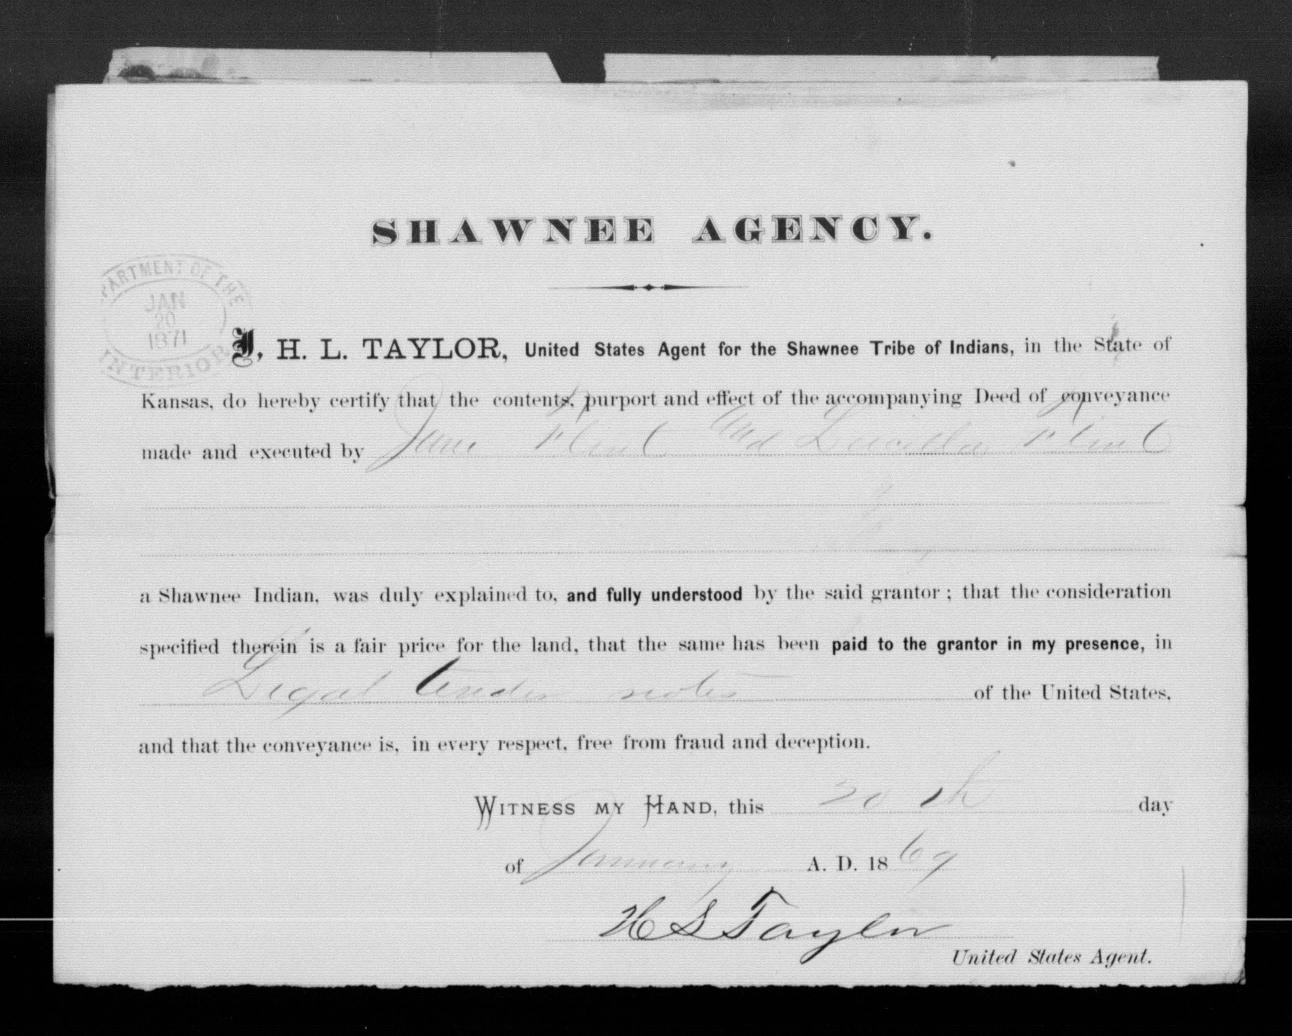 SHAWNEE AGENCY.
DEPARTMENT OF THE
JAN
20
1871
INTERIOR
I, H. L. TAYLOR, United States Agent for the Shawnee Tribe of Indians, in the State of
Kansas, do hereby certify that the contents, purport and effect of the accompanying Deed of conveyance
made and executed by Jane Flint and Lucilla Flint
a Shawnee Indian, was duly explained to, and fully understood by the said grantor; that the consideration
specified therein is a fair price for the land, that the same has been paid to the grantor in my presence, in
Legal tender notes of the United States,
and that the conveyance is, in every respect, free from fraud and deception.
WITNESS MY HAND, this 20th day
of January A. D. 1869
H L Taylor
United States Agent.